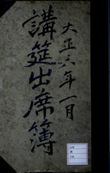 大正三年一月
講筵出席簿